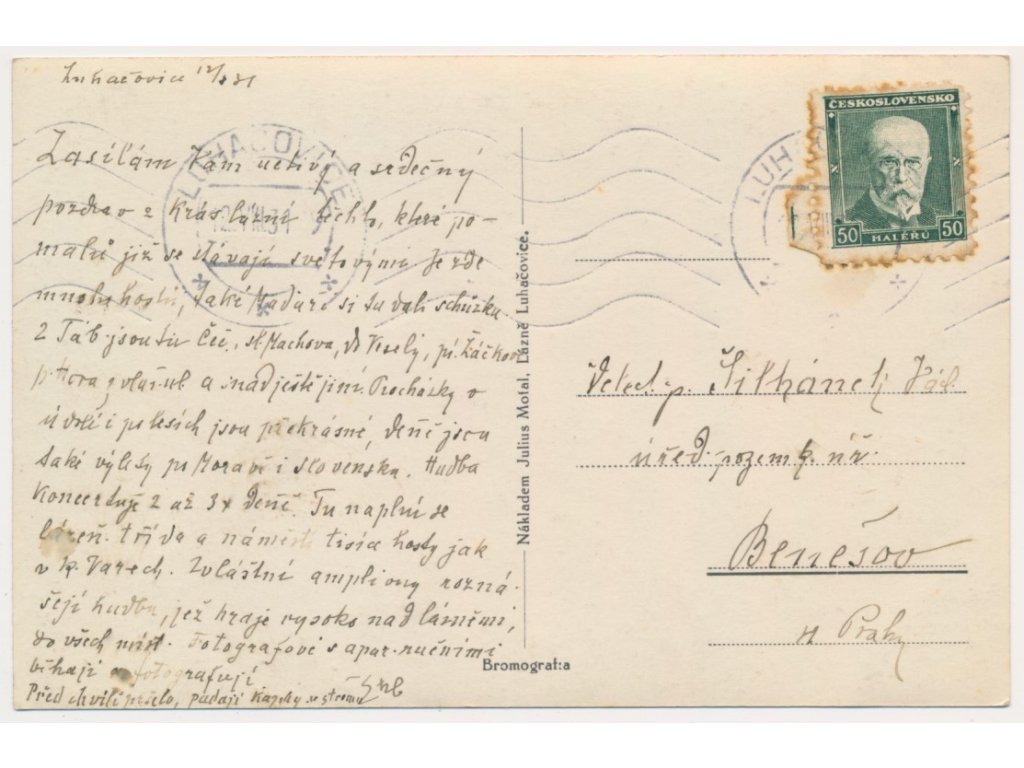 Luhačovice 12/8 31
Zasílám Vám uctivý a srdečný
pozdrav z krás. lázní těchto, které po-
malu již se stávají světovými. Je zde
mnoho hostů, také Maďaři si tu dali schůzku
Z Táb. jsou tu Čeč., sl. Machova, Dr Veselý, pí. Žáčková
p. Hora, zvlášť ul. a nadještější. Procházky v
údolí i po lesích jsou překrásné, denně jsou
také výlety po Moravě i Slovensku. Hudba
Koncertuje 2 až 3x denně. Tu naplní se
lázeň. třída a náměstí tisíce hosty jak
v K. Varech. Zvláštní ampliony rozná-
šejí hudbu, jež hraje vysoko nad lázněmi,
do všech míst. Fotografové s apar. ručními
běhají a fotografují
Před chvílí pršelo, padají kapky se stromu
LUHAČOVICE
12.VIII.31
LUHAČOVICE
ČESKOSLOVENSKO
50 HALÉŘŮ 50
Nákladem Julius Motal, Lázně Luhačovice.
Bromografia
Velect. p.
úřed. pozemk. úř.
Benešov
u Prahy